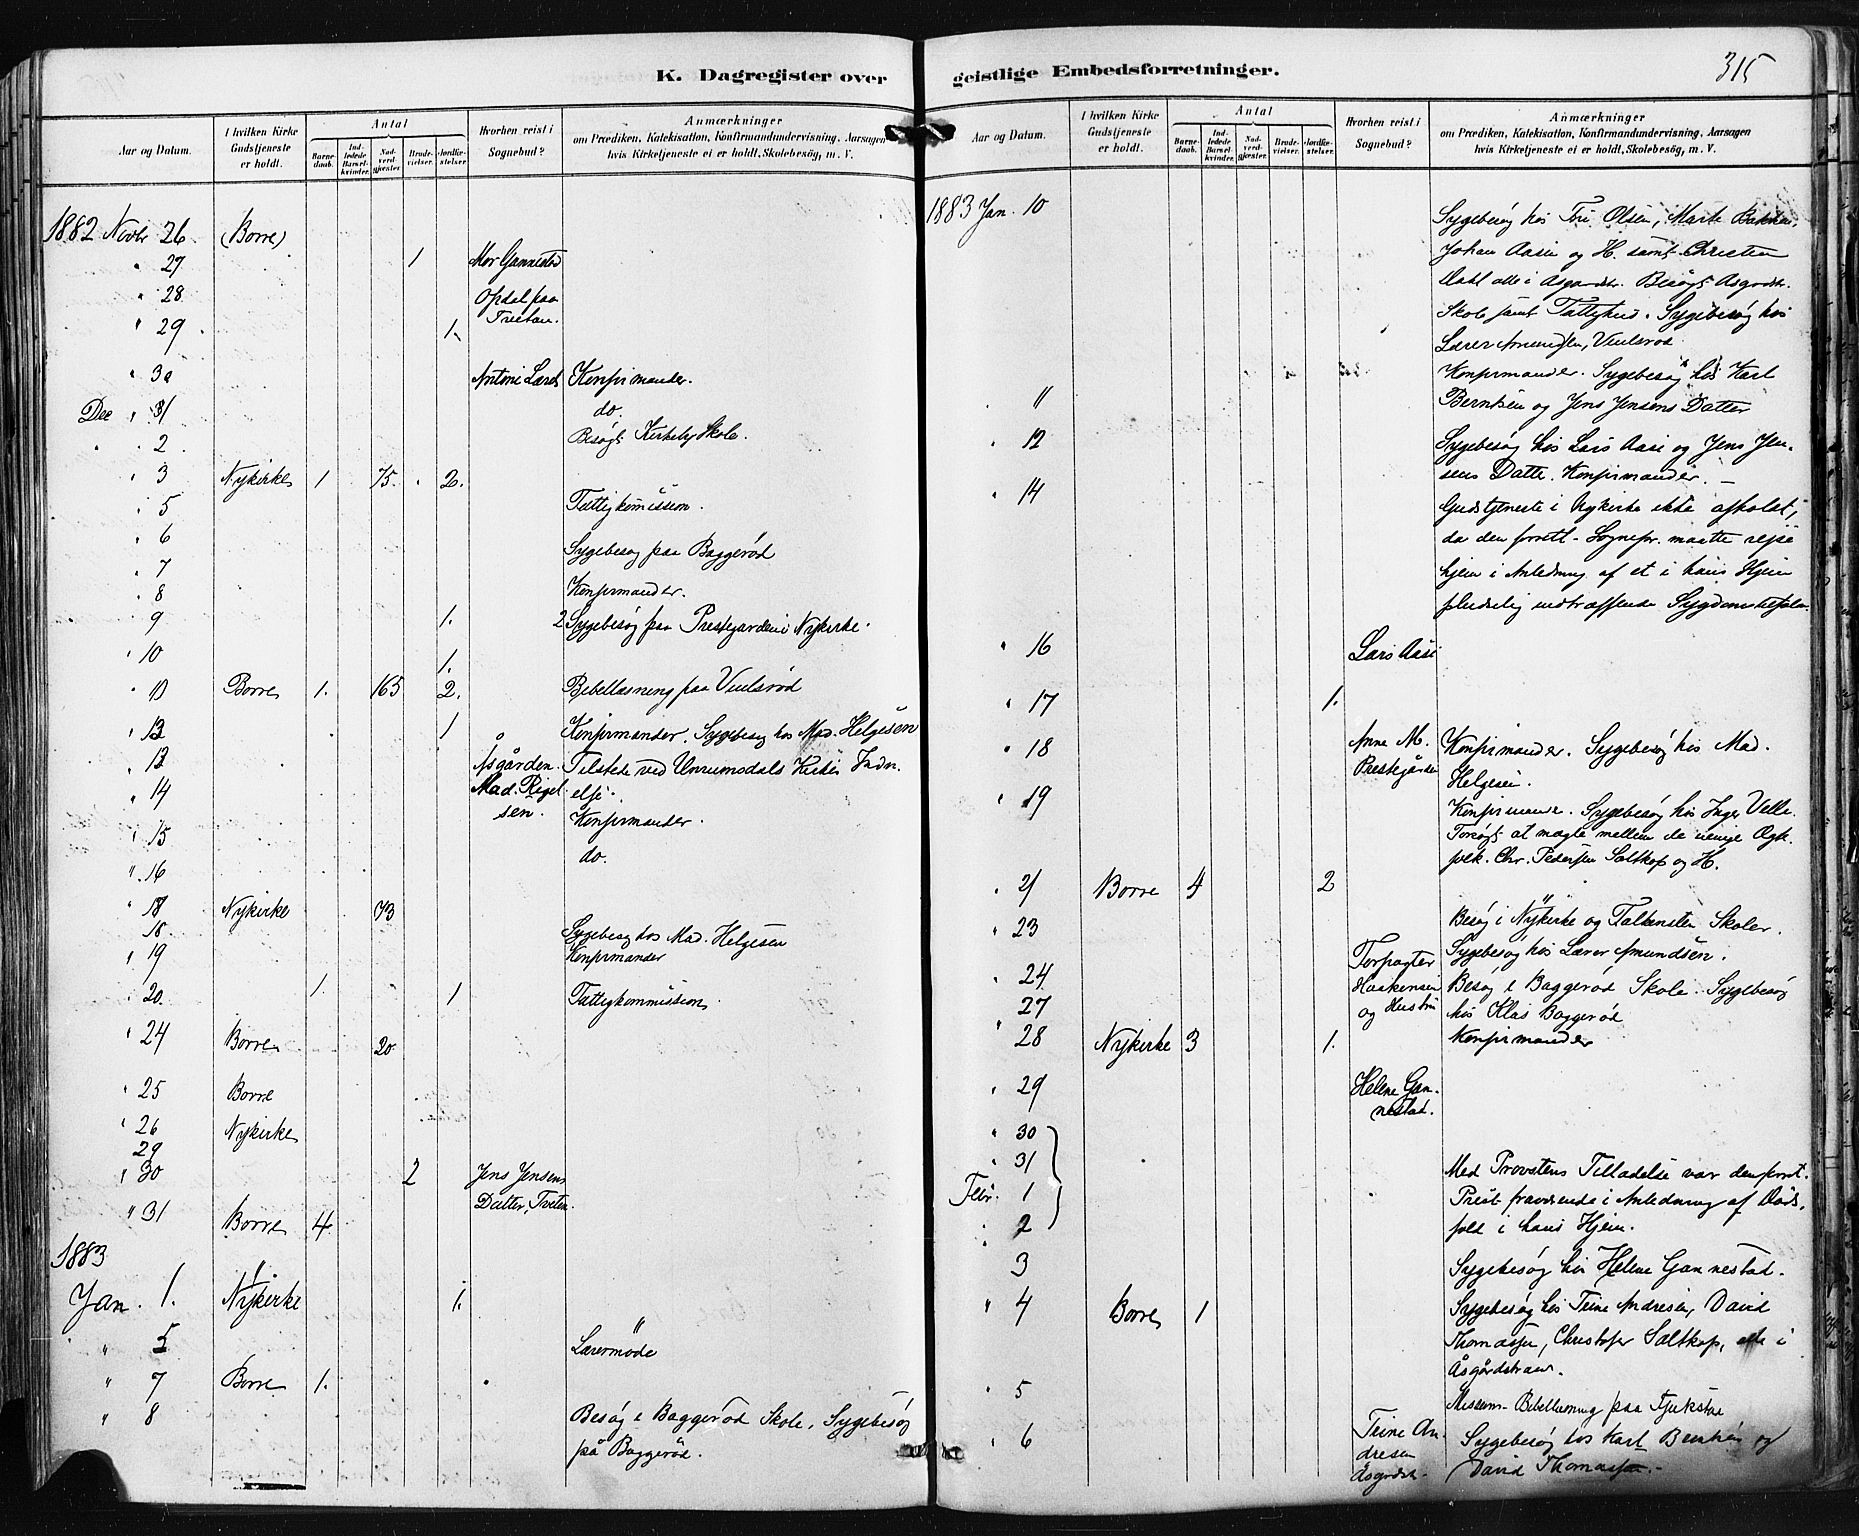 K. Dagregister over
Aar og Datum.
I hvilken Kirke Gudstjeneste er holdt.
Antal
Barnedaab.
Indledede Barselkvinder.
Nadverdgjester
Brudevielser.
Jordfæstelser.
Hvorhen reist i Sognebud?
Anmærkninger
om Prædiken, Katekisation, Konfirmandundervisning, Aarsagen
hvis Kirketjeneste ei er holdt, Skolebesög, m. V.
1882 Novbr 26. (Borre)
" 27 1 Mor Gannestad
" 28 Opdal paa
" 29. Tveitan. 1.
" 30 Antoni Konfirmander.
Dec " 1 do.
" 2 Besögt Kirkeby Skole.
" 3 Nykirke 1 75. 2.
" 5 Fattigkomission.
" 6
" 7 Sygebesög paa Baggeröd
" 8 Konfirmander.
" 9 1. 2 Sygebesög paa Prestegarden i Nykirke.
" 10 1.
" 10 Borre 1. 165 2. Bibellæsning paa
" 12 1 Konfirmander. Sygebesög hos Mad. Helgesen
" 13 Åsgården. Tilstede ved Kirkes Indv.
" 14 Mad. Rigel- else.
" 15 sen. Konfirmander.
" 16 do.
" 17 Nykirke 73
18 Sygebesög hos Mad. Helgesen
" 19 Konfirmander
" 20 1. 1 Fattigkommission
" 24 Borre 20
" 25 Borre
" 26 Nykirke
29
" 30 2 Jens Jensens
Datter, Tveten.
" 31 Borre 4.
1883
Jan. 1. Nykirke 1.
" 5 Lærermöde
" 7 Borre 1.
" 8 Besög i Baggeröd Skole, Sygebesög
på Baggeröd.
geistlige Embedsforretninger.
315
Aar og Datum.
I hvilken Kirke Gudstjeneste er holdt.
Antal
Barnedaab.
Indledede Barselkvinder.
Nadverdgjester.
Brudevielser.
Jordfæstelser.
Hvorhen reist i Sognebud?
Anmærkninger
om Prædiken, Katekisation, Konfirmandundervisning, Aarsagen
hvis Kirketjeneste ei er holdt, Skolebesög, m. V.
1883 Jan. 10 Sygebesög hos Olsen,
Johan Aasen og H. samt Christen
Dahl alle i Asgardstr. Besögt Asgardstr.
Skole samt Fattighus. Sygebesög hos
Lærer Amundsen,
Konfirmander. Sygebesög hos Karl
" 11 Berntsen og Jens Jensens Datter
" 12 Sygebesög hos Lars Aasen og Jens Jen-
sens Datter. Konfirmander. –
" 14 Gudstjeneste i Nykirke ikke afholdt,
da den forrett. Sognepr. maatte rejse
hjem i Anledning af et i hans Hjem
pludselig indtræffende Sygdomstilfælde.
" 16 Lars Aasen
" 17 1.
" 18 Anne M. Konfirmander. Sygebesög hos Mad.
Prestegården Helgesen.
" 19 Konfirmander. Sygebesög hos Inger Velle.
Forsögt at mægle mellem de uenige Ægte-
folk. Chr. Pedersen Saltkop og H.
" 21 Borre 4 2
" 23 Besög i Nykirke og Falkensten Skoler.
Forpagter Sygebesög hos Lærer Amundsen.
" 24 Haakensen Besög i Baggeröd Skole. Sygebesög
27 og Hustru hos Klas Baggeröd
" 28 Nykirke 3 1. Konfirmander
" 29 Helene Gan-
nestad.
" 30
" 31 Med Provstens Tilladelse var den forret.
Febr. 1 Prest fraværende i Anledning af Döds-
" 2 fald i hans Hjem.
3 Sygebesög hos Helene Gannestad.
" 4 Borre 1 Sygebesög hos Trine Andresen, David
Thomassen, Christofer Saltkop, alle i
Åsgårdstrand.
" 5 Missions- Bibellæsning paa
" 6 Trine An- Sygebesög hos Karl Berntsen og
dresen David Thomassen.
Åsgardstr.